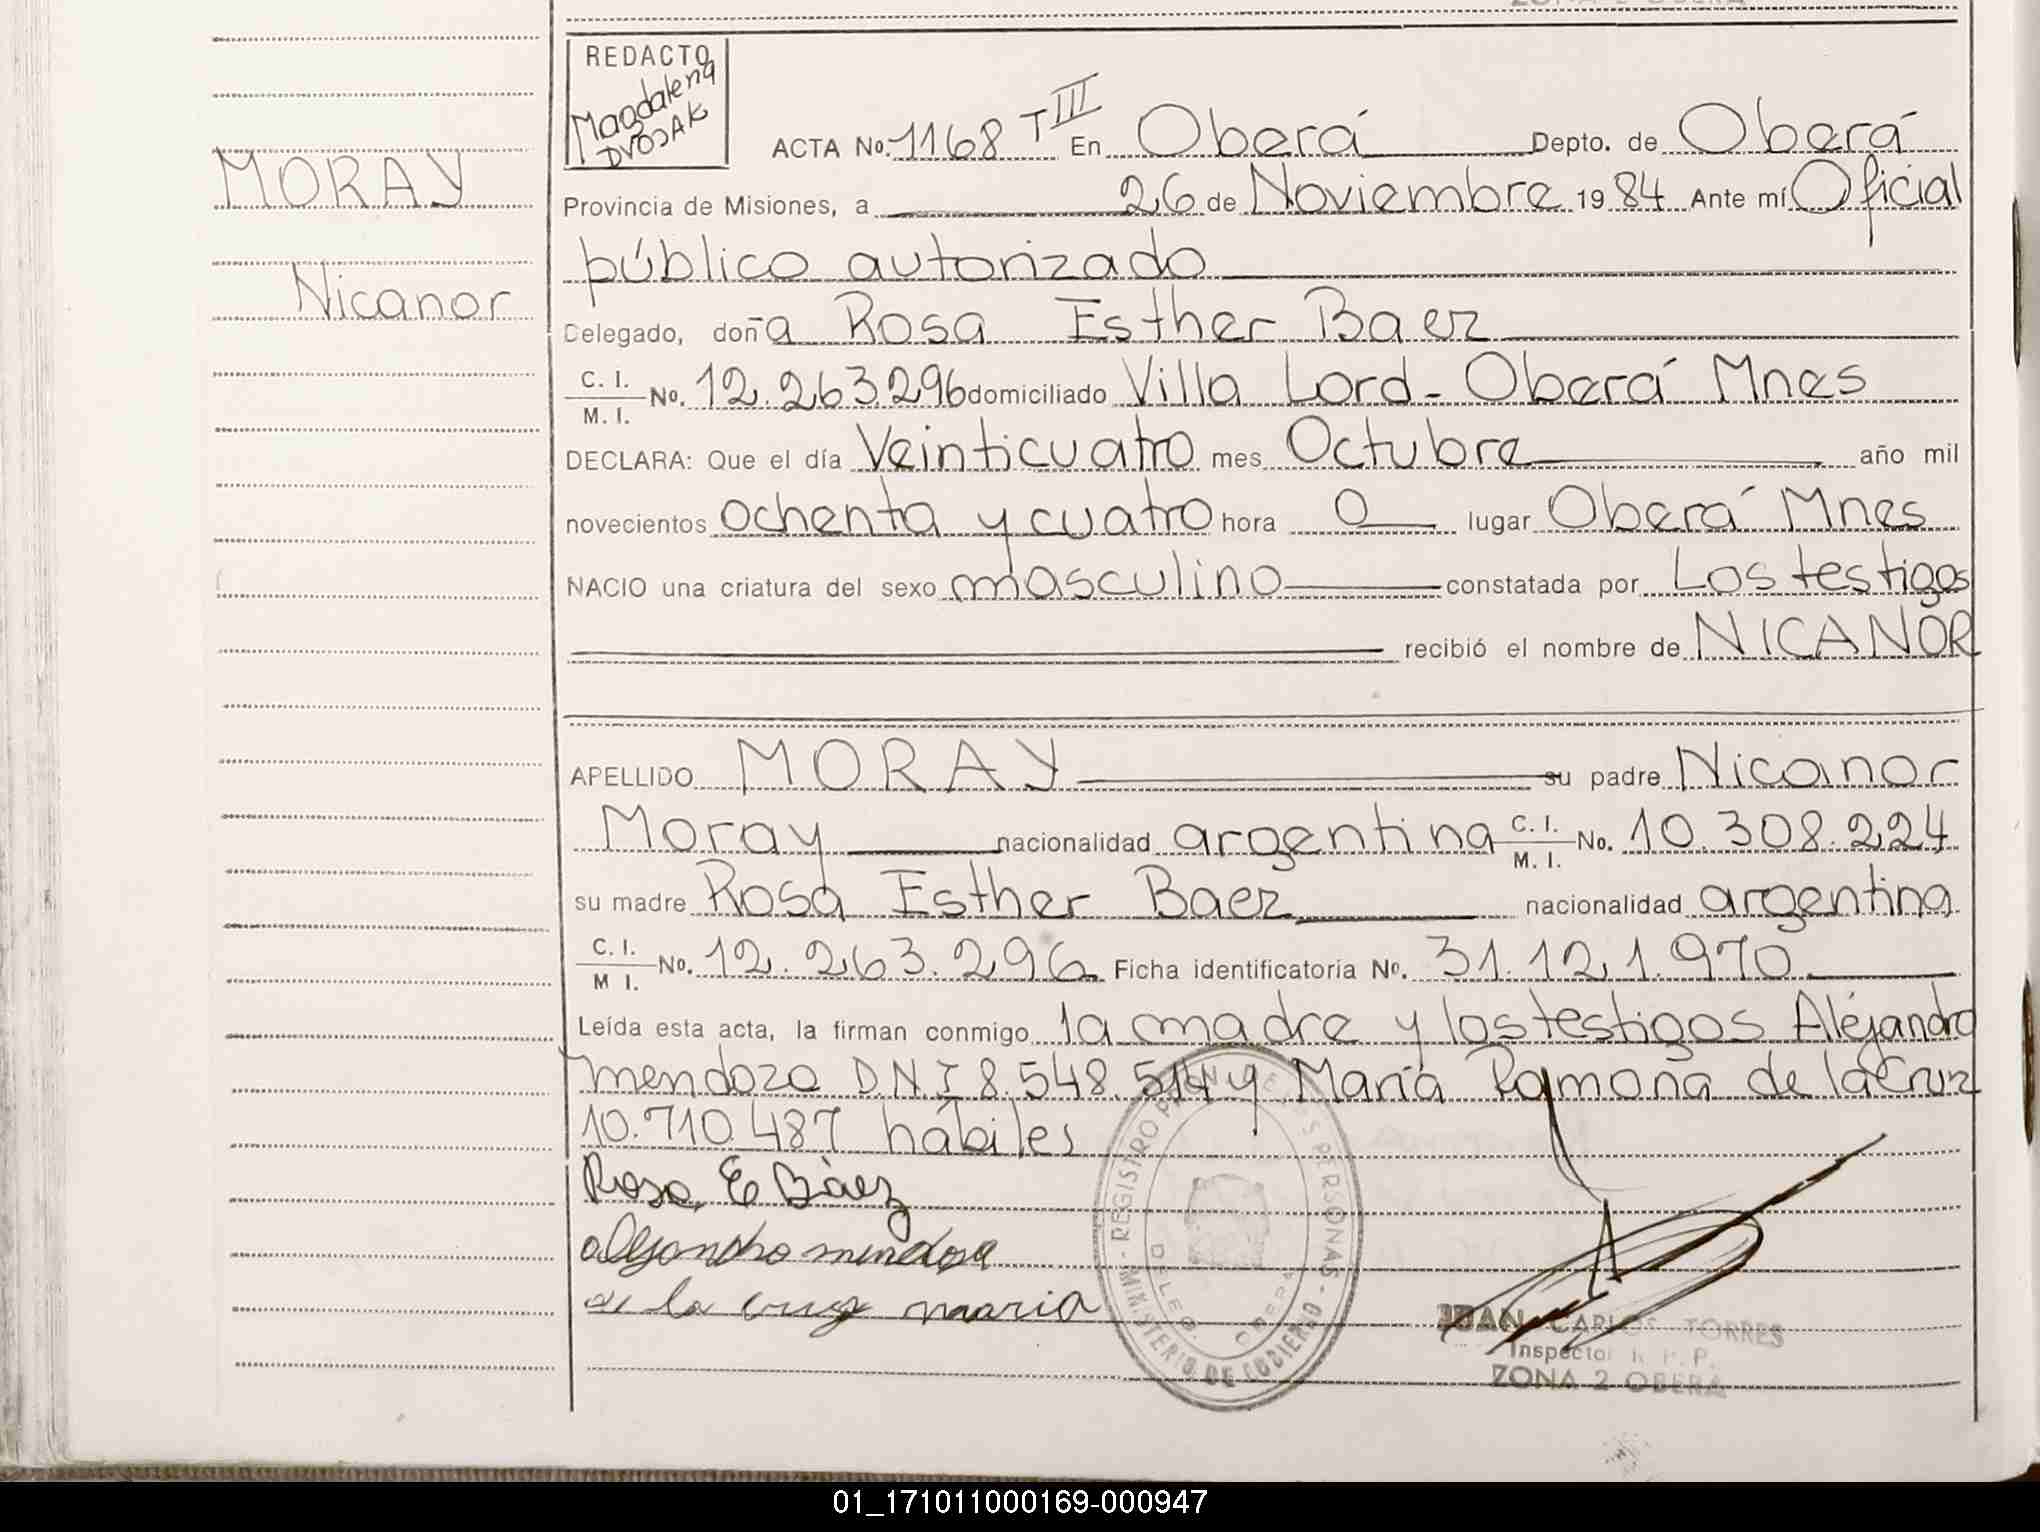 REDACTO
Magdalena
DVOJAK
MORAY
Nicanor
ACTA No. 1168 T III En Oberá Depto. de Oberá
Provincia de Misiones, a 26 de Noviembre 1984 Ante mí Oficial
público autorizado
Delegado, doña Rosa Esther Baez
C. I. / M. I. No. 12.263.296 domiciliado Villa Lord - Oberá Mnes
DECLARA: Que el día Veinticuatro mes Octubre año mil
novecientos ochenta y cuatro hora 0 lugar Oberá Mnes
NACIO una criatura del sexo masculino constatada por Los testigos
recibió el nombre de NICANOR
APELLIDO MORAY su padre Nicanor
Moray nacionalidad argentina C. I. / M. I. No. 10.308.224
su madre Rosa Esther Baez nacionalidad argentina
C. I. / M I. No. 12.263.296 Ficha identificatoria No. 31.12.1.970
Leída esta acta, la firman conmigo la madre y los testigos Aléjandro
mendoza D.N.I 8.548.514 y María Ramona de la Cruz
10.710.487 hábiles
Rosa E Báez
alejandro mendoza
de la cruz maria
REGISTRO DE LAS PERSONAS - MINISTERIO DE GOBIERNO
DELEG. OBERA
JUAN CARLOS TORRES
Inspector R. P. P.
ZONA 2 OBERA
01_171011000169-000947